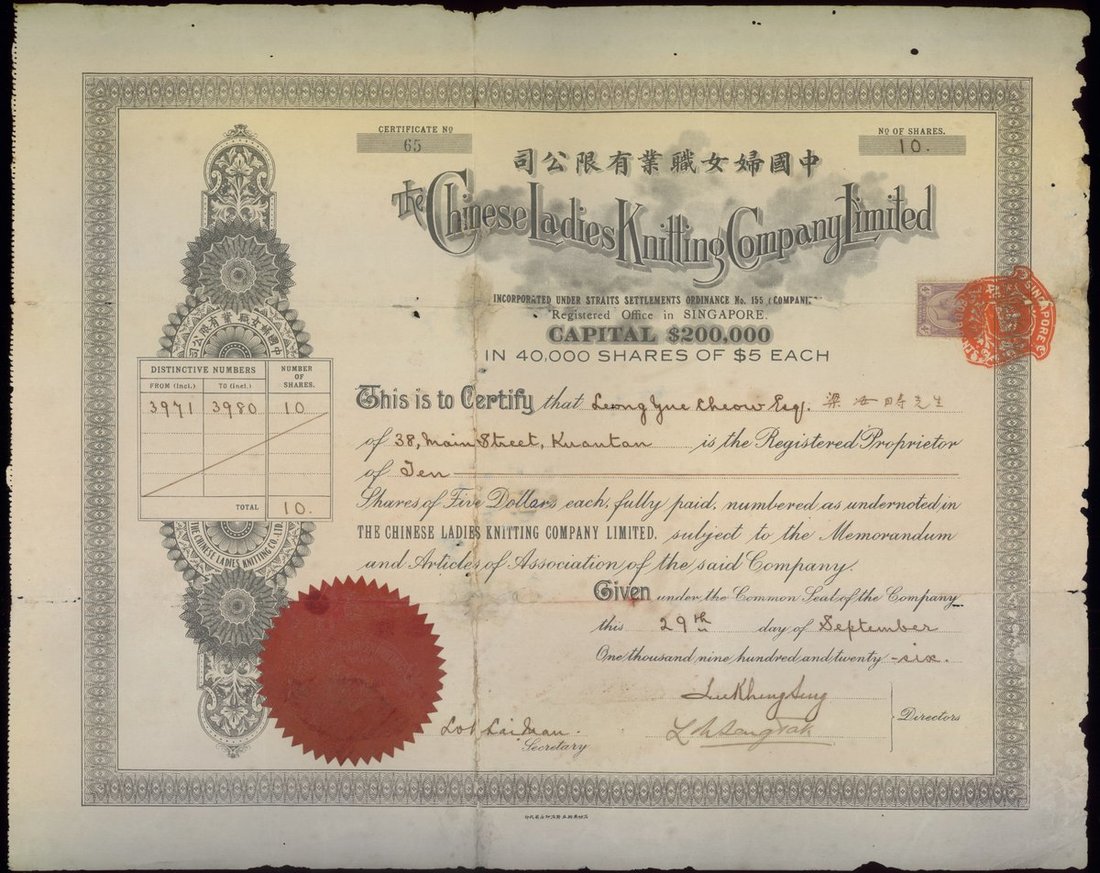 CERTIFICATE Nº
65
Nº OF SHARES.
10.
司公限有業職女婦國中
The Chinese Ladies Knitting Company Limited
INCORPORATED UNDER STRAITS SETTLEMENTS ORDINANCE No. 155 (COMPANIE
Registered Office in SINGAPORE.
CAPITAL $200,000
IN 40,000 SHARES OF $5 EACH
SINGAPORE
司公限有業職女婦國中
DISTINCTIVE NUMBERS
NUMBER OF SHARES.
FROM (Incl.) TO (Incl.)
3971 3980 10
TOTAL 10.
THE CHINESE LADIES KNITTING CO., LTD.
This is to Certify that Leong Yue Cheow Esq. 梁 時先生
of 38, Main Street, Kuantan is the Registered Proprietor
of Ten
Shares of Five Dollars each, fully paid, numbered as undernoted in
THE CHINESE LADIES KNITTING COMPANY LIMITED, subject to the Memorandum
and Articles of Association of the said Company.
Given under the Common Seal of the Company
this 29th day of September
One thousand nine hundred and twenty -six.
Lee Kheng Seng
Directors
Secretary